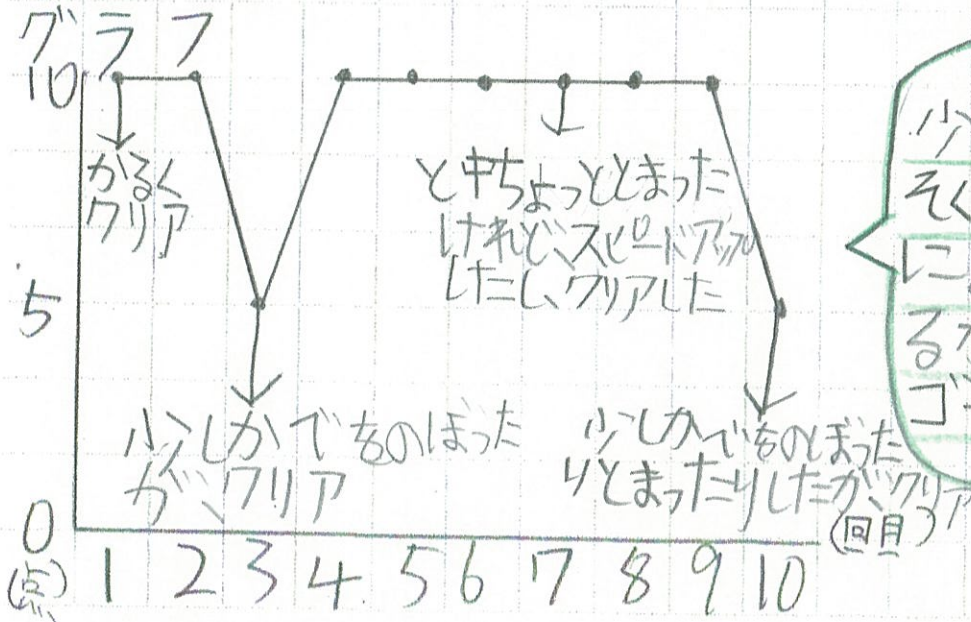 グラフ
10
かるく
クリア
と中ちょっととまった
けれど、スピードアップ
したし、クリアした
5
少しかでをのぼった
が、クリア
少しかでをのぼった
りとまったりしたが、クリア
0
(回目)
(点)
1 2 3 4 5 6 7 8 9 10
少
そく
に
る
ゴ